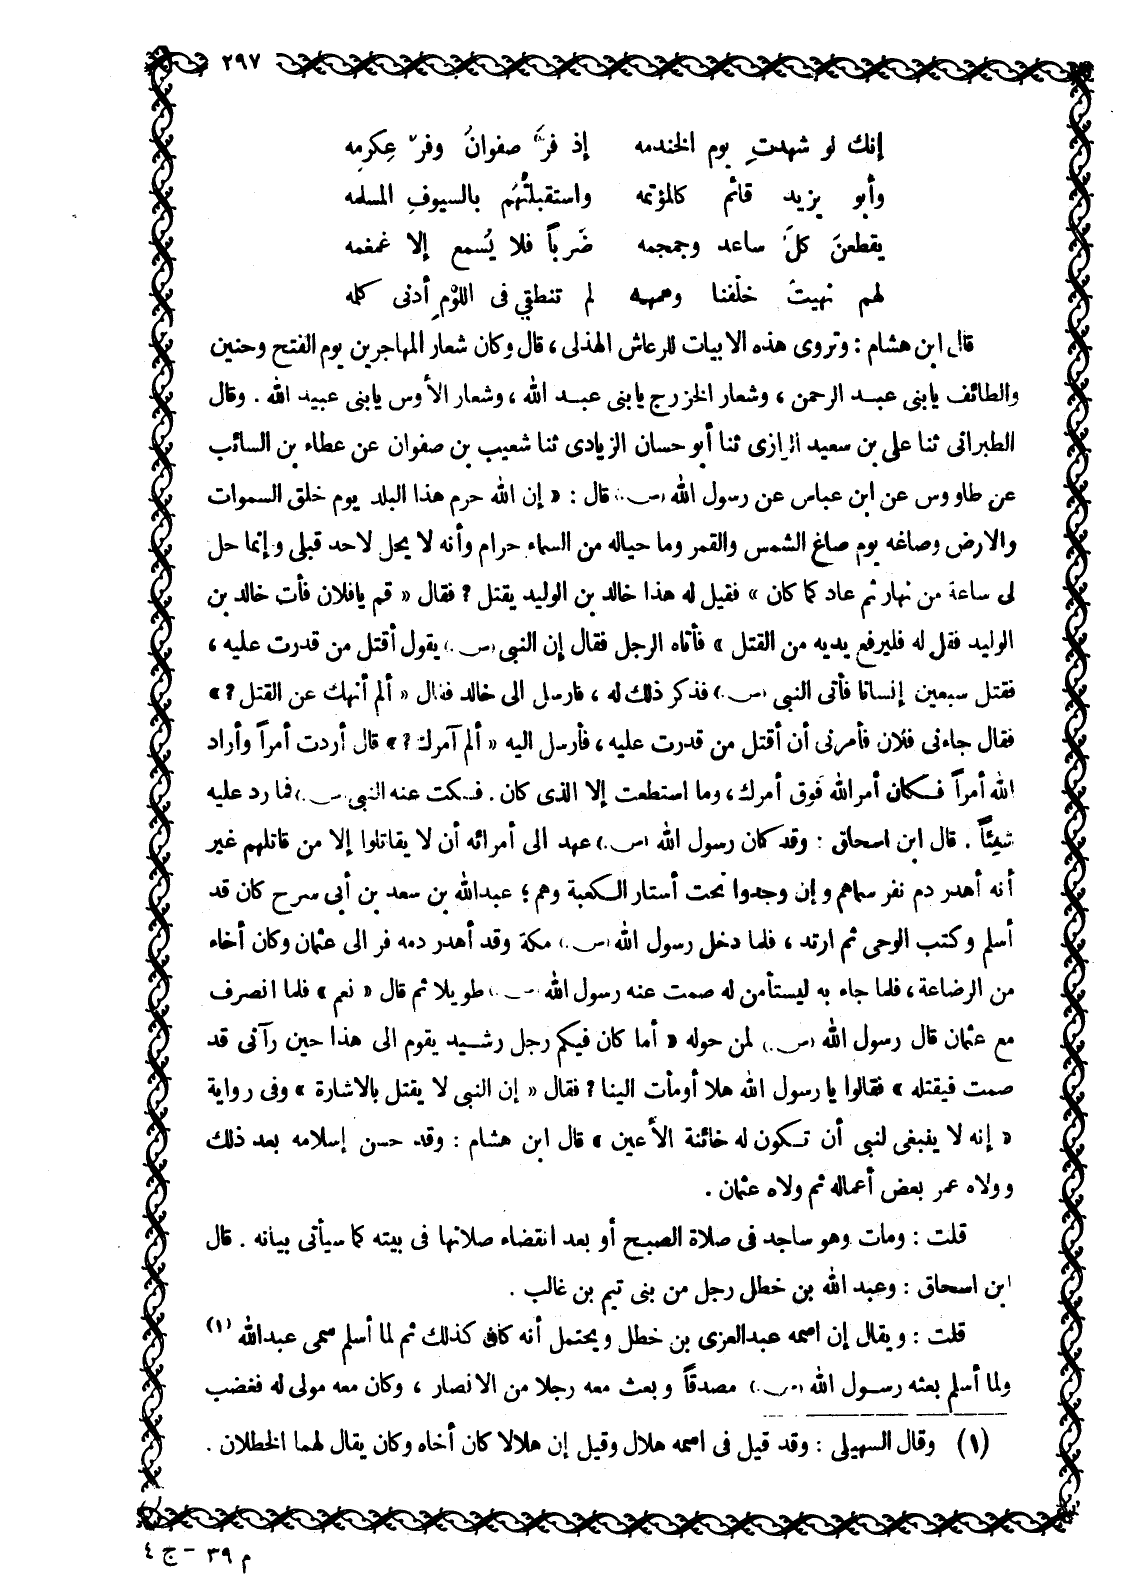 ٢٩٧
إنك لو شهدتِ يوم الخندمه إذ فرَّ صفوانُ وفرّ عِكرمِه
وأبو يزيد قائم كالمؤتمه واستقبلتْهُم بالسيوفِ المسلمه
يقطعنَ كلَّ ساعد وجمجمه ضَرباً فلا يُسمع إلا غمغمه
لهم نهيتٌ خلْفنا وهمهمه لم تنطقي فى اللوْمِ أدنى كلمه
قال ابن هشام : وتروى هذه الابيات للرعاش الهذلى ، قال وكان شعار المهاجرين يوم الفتح وحنين
والطائف يابنى عبد الرحمن ، وشعار الخزرج يابنى عبد الله ، وشعار الأوس يابنى عبيد الله . وقال
الطبرانى ثنا على بن سعيد الرازى ثنا أبو حسان الزيادى ثنا شعيب بن صفوان عن عطاء بن السائب
عن طاووس عن ابن عباس عن رسول الله (ص.) قال : « إن الله حرم هذا البلد يوم خلق السموات
والارض وصاغه يوم صاغ الشمس والقمر وما حياله من السماء حرام وأنه لا يحل لاحد قبلى وإنما حل
لى ساعة من نهار ثم عاد كما كان » فقيل له هذا خالد بن الوليد يقتل ? فقال « قم يافلان فأت خالد بن
الوليد فقل له فليرفع يديه من القتل » فأتاه الرجل فقال إن النبى (ص.) يقول أقتل من قدرت عليه ،
فقتل سبعين إنسانا فأتى النبى (ص.) فذكر ذلك له ، فارسل الى خالد فقال « ألم أنهك عن القتل ? »
فقال جاءنى فلان فأمرنى أن أقتل من قدرت عليه ، فأرسل اليه « ألم آمرك ? » قال أردت أمراً وأراد
الله أمراً فكان أمر الله فوق أمرك ، وما استطعت إلا الذى كان . فسكت عنه النبى (ص.) فما رد عليه
شيئاً . قال ابن اسحاق : وقد كان رسول الله (ص.) عهد الى أمرائه أن لا يقاتلوا إلا من قاتلهم غير
أنه أهدر دم نفر سماهم وإن وجدوا تحت أستار الكعبة وهم ؛ عبدالله بن سعد بن أبى سرح كان قد
أسلم وكتب الوحى ثم ارتد ، فلما دخل رسول الله (ص.) مكة وقد أهدر دمه فر الى عثمان وكان أخاه
من الرضاعة ، فلما جاء به ليستأمن له صمت عنه رسول الله (ص.) طويلا ثم قال « نعم » فلما انصرف
مع عثمان قال رسول الله (ص.) لمن حوله « أما كان فيكم رجل رشيد يقوم الى هذا حين رآنى قد
صمت فيقتله » فقالوا يا رسول الله هلا أومأت الينا ? فقال « إن النبى لا يقتل بالاشارة » وفى رواية
« إنه لا ينبغى لنبى أن تكون له خائنة الأعين » قال ابن هشام : وقد حسن إسلامه بعد ذلك
وولاه عمر بعض أعماله ثم ولاه عثمان .
قلت : ومات وهو ساجد فى صلاة الصبح أو بعد انقضاء صلاتها فى بيته كما سيأتى بيانه . قال
ابن اسحاق : وعبد الله بن خطل رجل من بنى تيم بن غالب .
قلت : ويقال إن اسمه عبدالعزى بن خطل ويحتمل أنه كان كذلك ثم لما أسلم سمى عبدالله (١)
ولما أسلم بعثه رسول الله (ص.) مصدقاً وبعث معه رجلا من الانصار ، وكان معه مولى له فغضب
(١) وقال السهيلى : وقد قيل فى اسمه هلال وقيل إن هلالا كان أخاه وكان يقال لهما الخطلان .
م ٣٩ - ج ٤